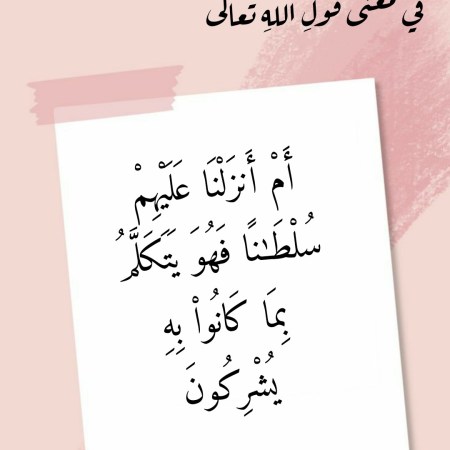 في معنى قول اللهِ تعالى
أَمْ أَنزَلْنَا عَلَيْهِمْ
سُلْطَـٰنًا فَهُوَ يَتَكَلَّمُ
بِمَا كَانُوا۟ بِهِ
يُشْرِكُونَ